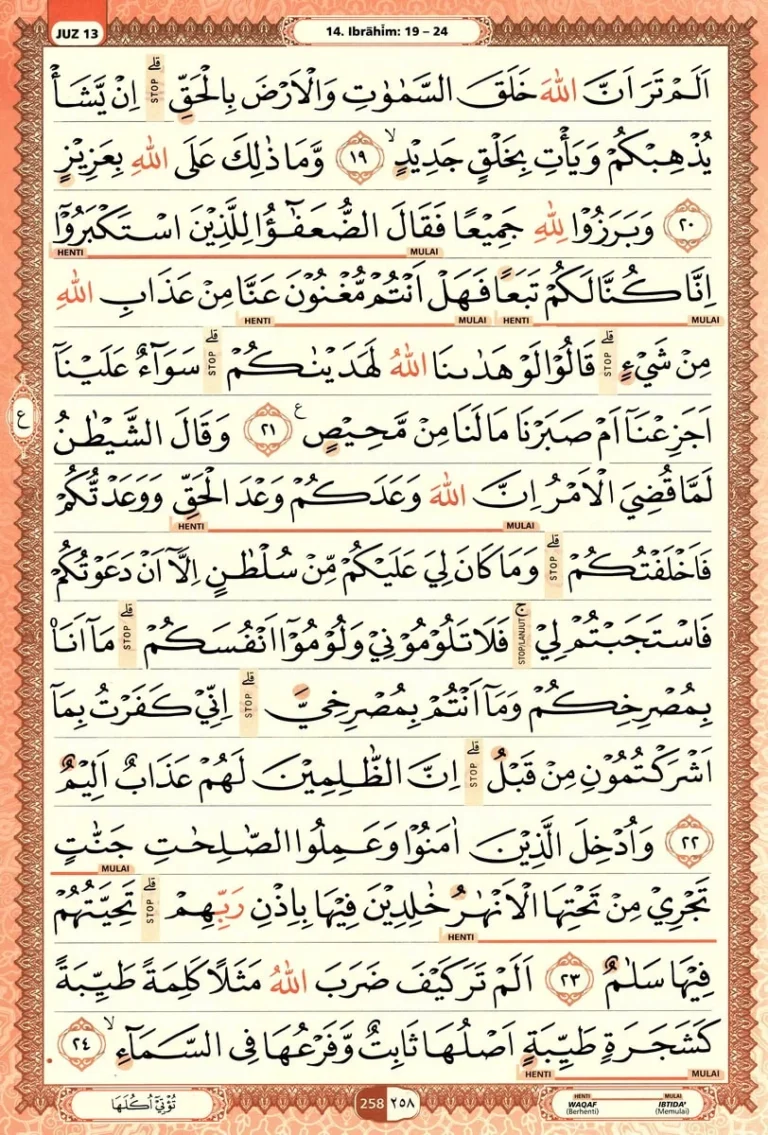 JUZ 13
14. Ibrāhīm: 19 – 24
اَلَمْ تَرَ اَنَّ اللّٰهَ خَلَقَ السَّمٰوٰتِ وَالْاَرْضَ بِالْحَقِّۗ STOP اِنْ يَّشَأْ
يُذْهِبْكُمْ وَيَأْتِ بِخَلْقٍ جَدِيْدٍۙ ١٩ وَّمَا ذٰلِكَ عَلَى اللّٰهِ بِعَزِيْزٍ
٢٠ وَبَرَزُوْا لِلّٰهِ جَمِيْعًا فَقَالَ الضُّعَفٰۤؤُا لِلَّذِيْنَ اسْتَكْبَرُوْٓا
MULAI HENTI
اِنَّا كُنَّا لَكُمْ تَبَعًا فَهَلْ اَنْتُمْ مُّغْنُوْنَ عَنَّا مِنْ عَذَابِ اللّٰهِ
MULAI HENTI MULAI HENTI
مِنْ شَيْءٍۗ STOP قَالُوْا لَوْ هَدٰىنَا اللّٰهُ لَهَدَيْنٰكُمْۗ STOP سَوَاۤءٌ عَلَيْنَآ
اَجَزِعْنَآ اَمْ صَبَرْنَا مَا لَنَا مِنْ مَّحِيْصٍ ࣖ ٢١ وَقَالَ الشَّيْطٰنُ
ع
لَمَّا قُضِيَ الْاَمْرُ اِنَّ اللّٰهَ وَعَدَكُمْ وَعْدَ الْحَقِّ وَوَعَدْتُّكُمْ
MULAI HENTI
فَاَخْلَفْتُكُمْۗ STOP وَمَا كَانَ لِيَ عَلَيْكُمْ مِّنْ سُلْطٰنٍ اِلَّآ اَنْ دَعَوْتُكُمْ
فَاسْتَجَبْتُمْ لِيْۚ STOP/LANJUT فَلَا تَلُوْمُوْنِيْ وَلُوْمُوْٓا اَنْفُسَكُمْۗ STOP مَآ اَنَا۠
بِمُصْرِخِكُمْ وَمَآ اَنْتُمْ بِمُصْرِخِيَّۗ STOP اِنِّيْ كَفَرْتُ بِمَآ
اَشْرَكْتُمُوْنِ مِنْ قَبْلُۗ STOP اِنَّ الظّٰلِمِيْنَ لَهُمْ عَذَابٌ اَلِيْمٌ
٢٢ وَاُدْخِلَ الَّذِيْنَ اٰمَنُوْا وَعَمِلُوا الصّٰلِحٰتِ جَنّٰتٍ
MULAI
تَجْرِيْ مِنْ تَحْتِهَا الْاَنْهٰرُ خٰلِدِيْنَ فِيْهَا بِاِذْنِ رَبِّهِمْۗ STOP تَحِيَّتُهُمْ
HENTI
فِيْهَا سَلٰمٌ ٢٣ اَلَمْ تَرَ كَيْفَ ضَرَبَ اللّٰهُ مَثَلًا كَلِمَةً طَيِّبَةً
كَشَجَرَةٍ طَيِّبَةٍ اَصْلُهَا ثَابِتٌ وَّفَرْعُهَا فِى السَّمَاۤءِۙ ٢٤
MULAI HENTI
تُؤْتِيْٓ اُكُلَهَا
258 ٢٥٨
HENTI MULAI
WAQAF IBTIDA'
(Berhenti) (Memulai)